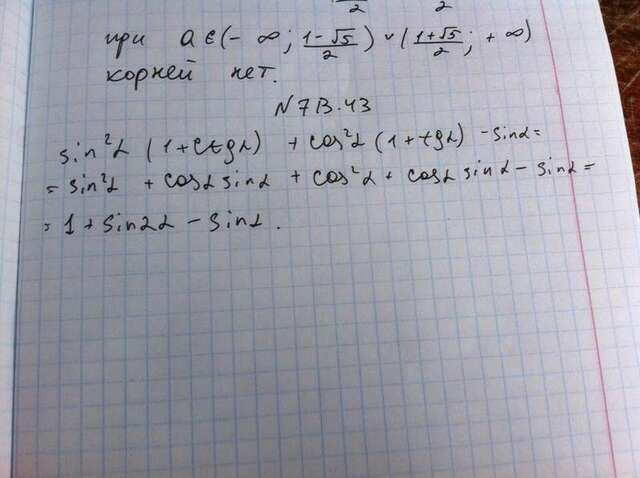 2 2
при a ∈ (- ∞; (1-√5)/2) ∪ ((1+√5)/2; + ∞)
корней нет.
N 7B.43
sin²α (1+ctgα) + cos²α (1+tgα) - sinα =
= sin²α + cosα sinα + cos²α + cosα sinα - sinα =
= 1 + sin2α - sinα.